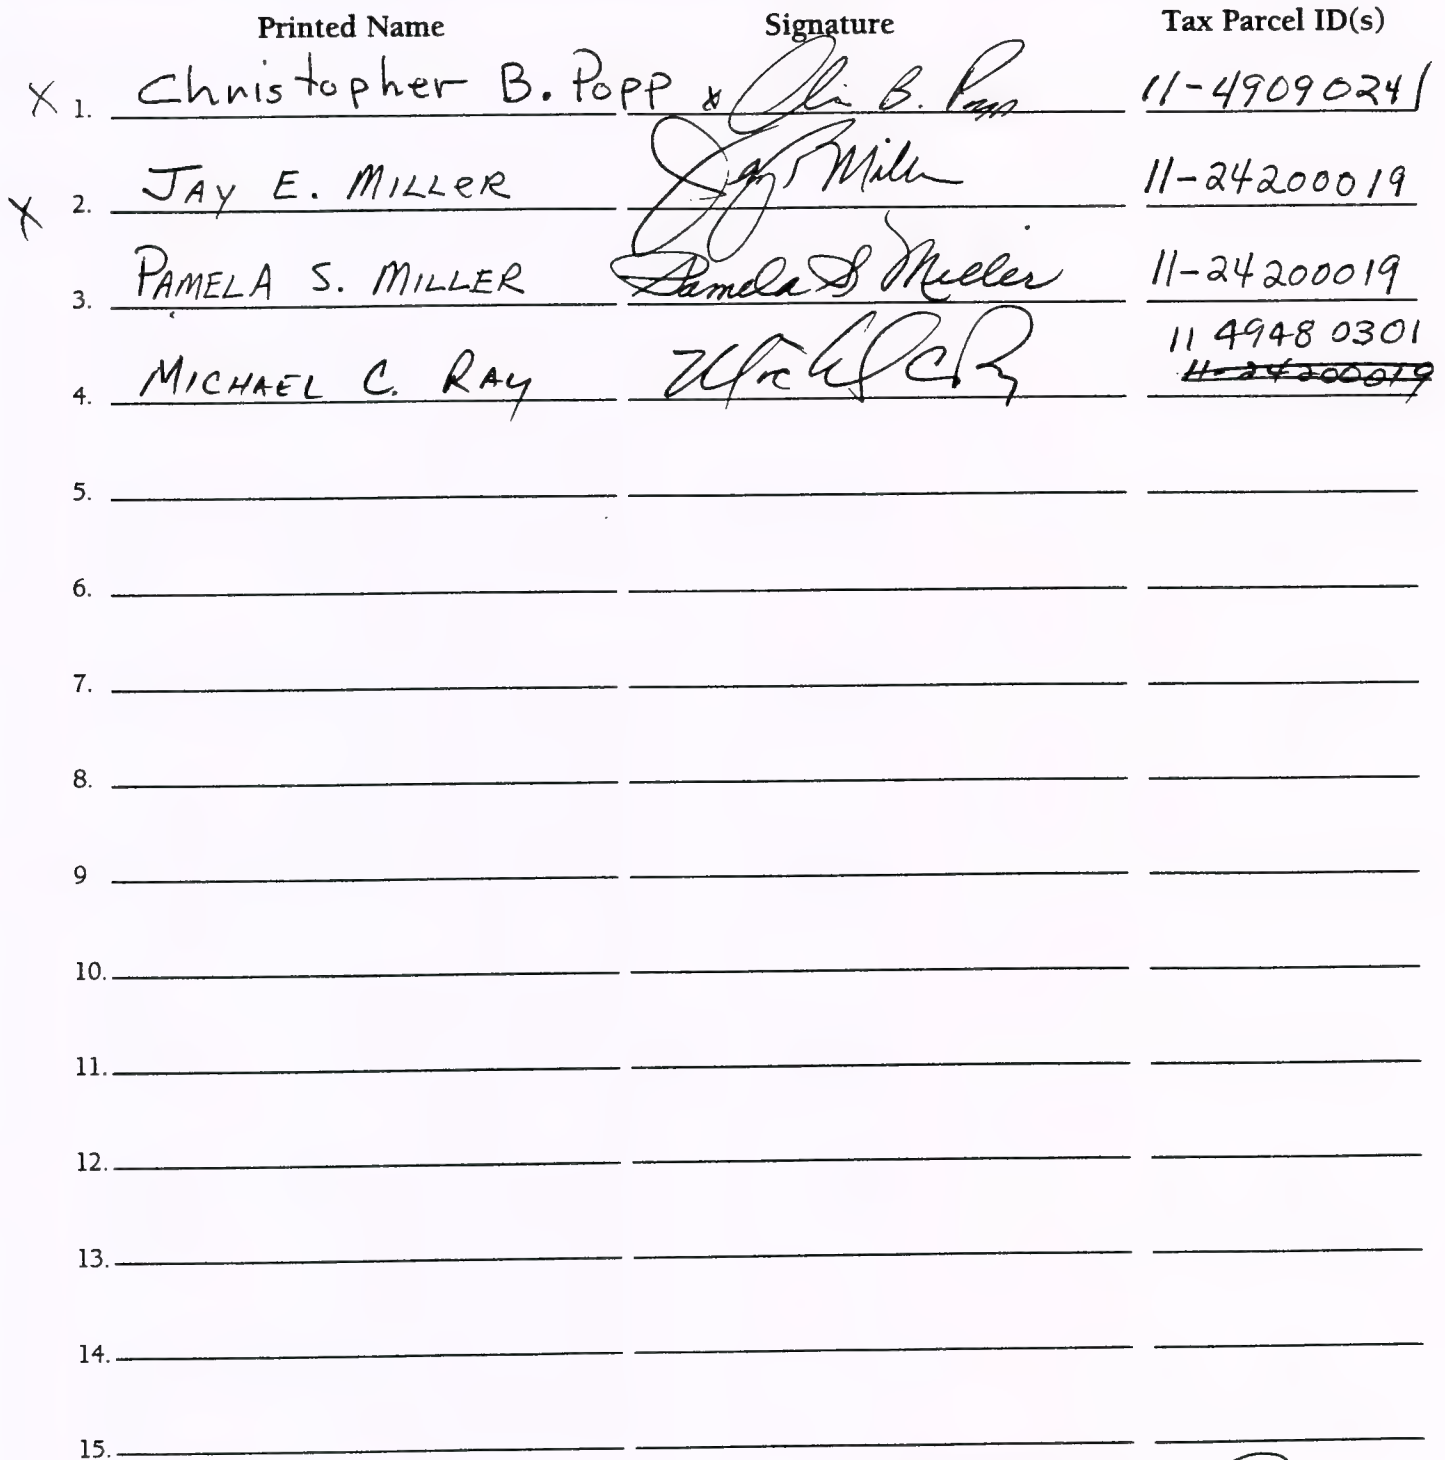 Printed Name Signature Tax Parcel ID(s)
X 1. Christopher B. Popp x B. Popp 11-49090241
X 2. JAY E. MILLER Jay E Miller 11-24200019
3. PAMELA S. MILLER Pamela S Miller 11-24200019
11 4948 0301
4. MICHAEL C. RAY Michael C Ray 11-24200019
5.
6.
7.
8.
9
10.
11.
12.
13.
14.
15.